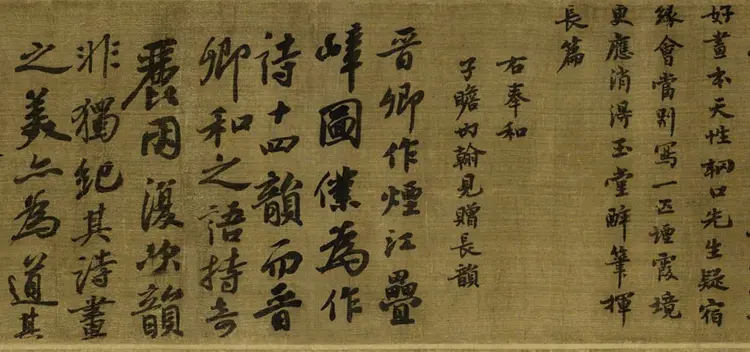 好畫本天性枊口先生疑宿
緣會當別寫一匹煙霞境
更應消得玉堂醉筆揮
長篇
右奉和
子瞻内翰見贈長韻
晉卿作煙江疊
嶂圖僕為作
詩十四韻而晉
卿和之語特奇
麗因復次韻
非獨紀其詩畫
之美亦為道其